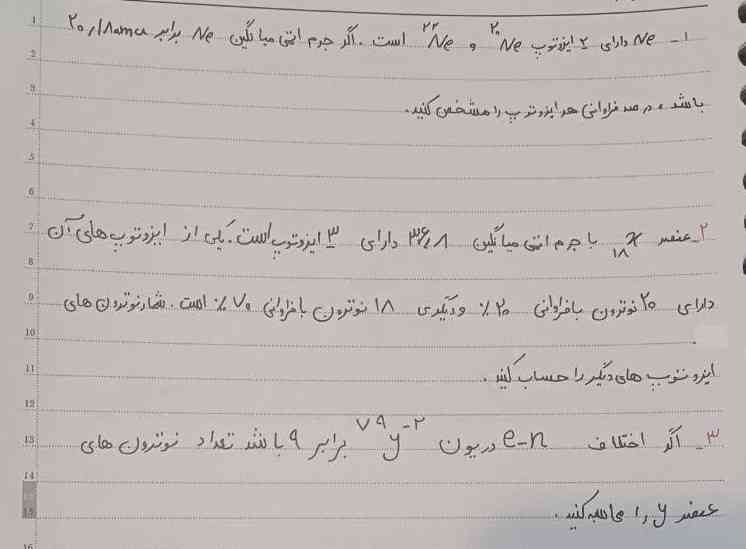 ۱- Ne دارای ۲ ایزوتوپ ²⁰Ne و ²²Ne است. اگر جرم اتمی میانگین Ne برابر ۲۰/۱۸amu
باشد، درصد فراوانی هر ایزوتوپ را مشخص کنید.
۲- عنصر ₁₈X با جرم اتمی میانگین ۳۶/۸ دارای ۳ ایزوتوپ است. یکی از ایزوتوپ های آن
دارای ۲۰ نوترون با فراوانی ۲۰٪ و دیگری ۱۸ نوترون با فراوانی ۷۰٪ است. شمار نوترون های
ایزوتوپ های دیگر را حساب کنید.
۳- اگر اختلاف e-n در یون ⁷⁹y⁻² برابر ۹ باشد تعداد نوترون های
عنصر y را محاسبه کنید.
1
2
3
4
5
6
7
8
9
10
11
12
13
14
15
16